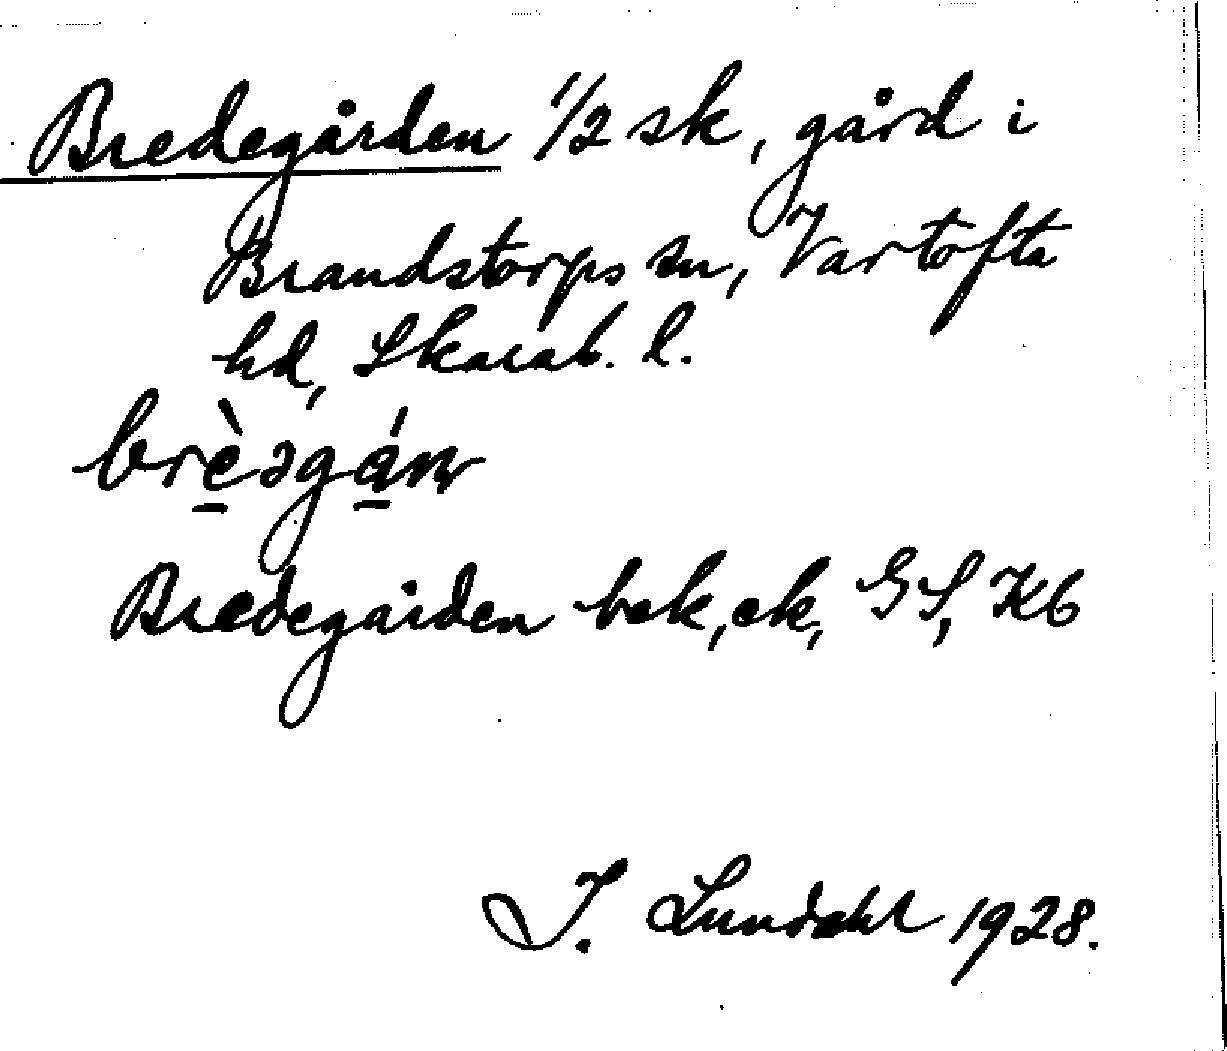 Bredegården 1/2 sk, gård i
Brandstorps sn, Vartofta
hd, Skarab. l.
brè̠əgá̠n
Bredegården bek, ek, GS, Kb
I. Lundahl 1928.